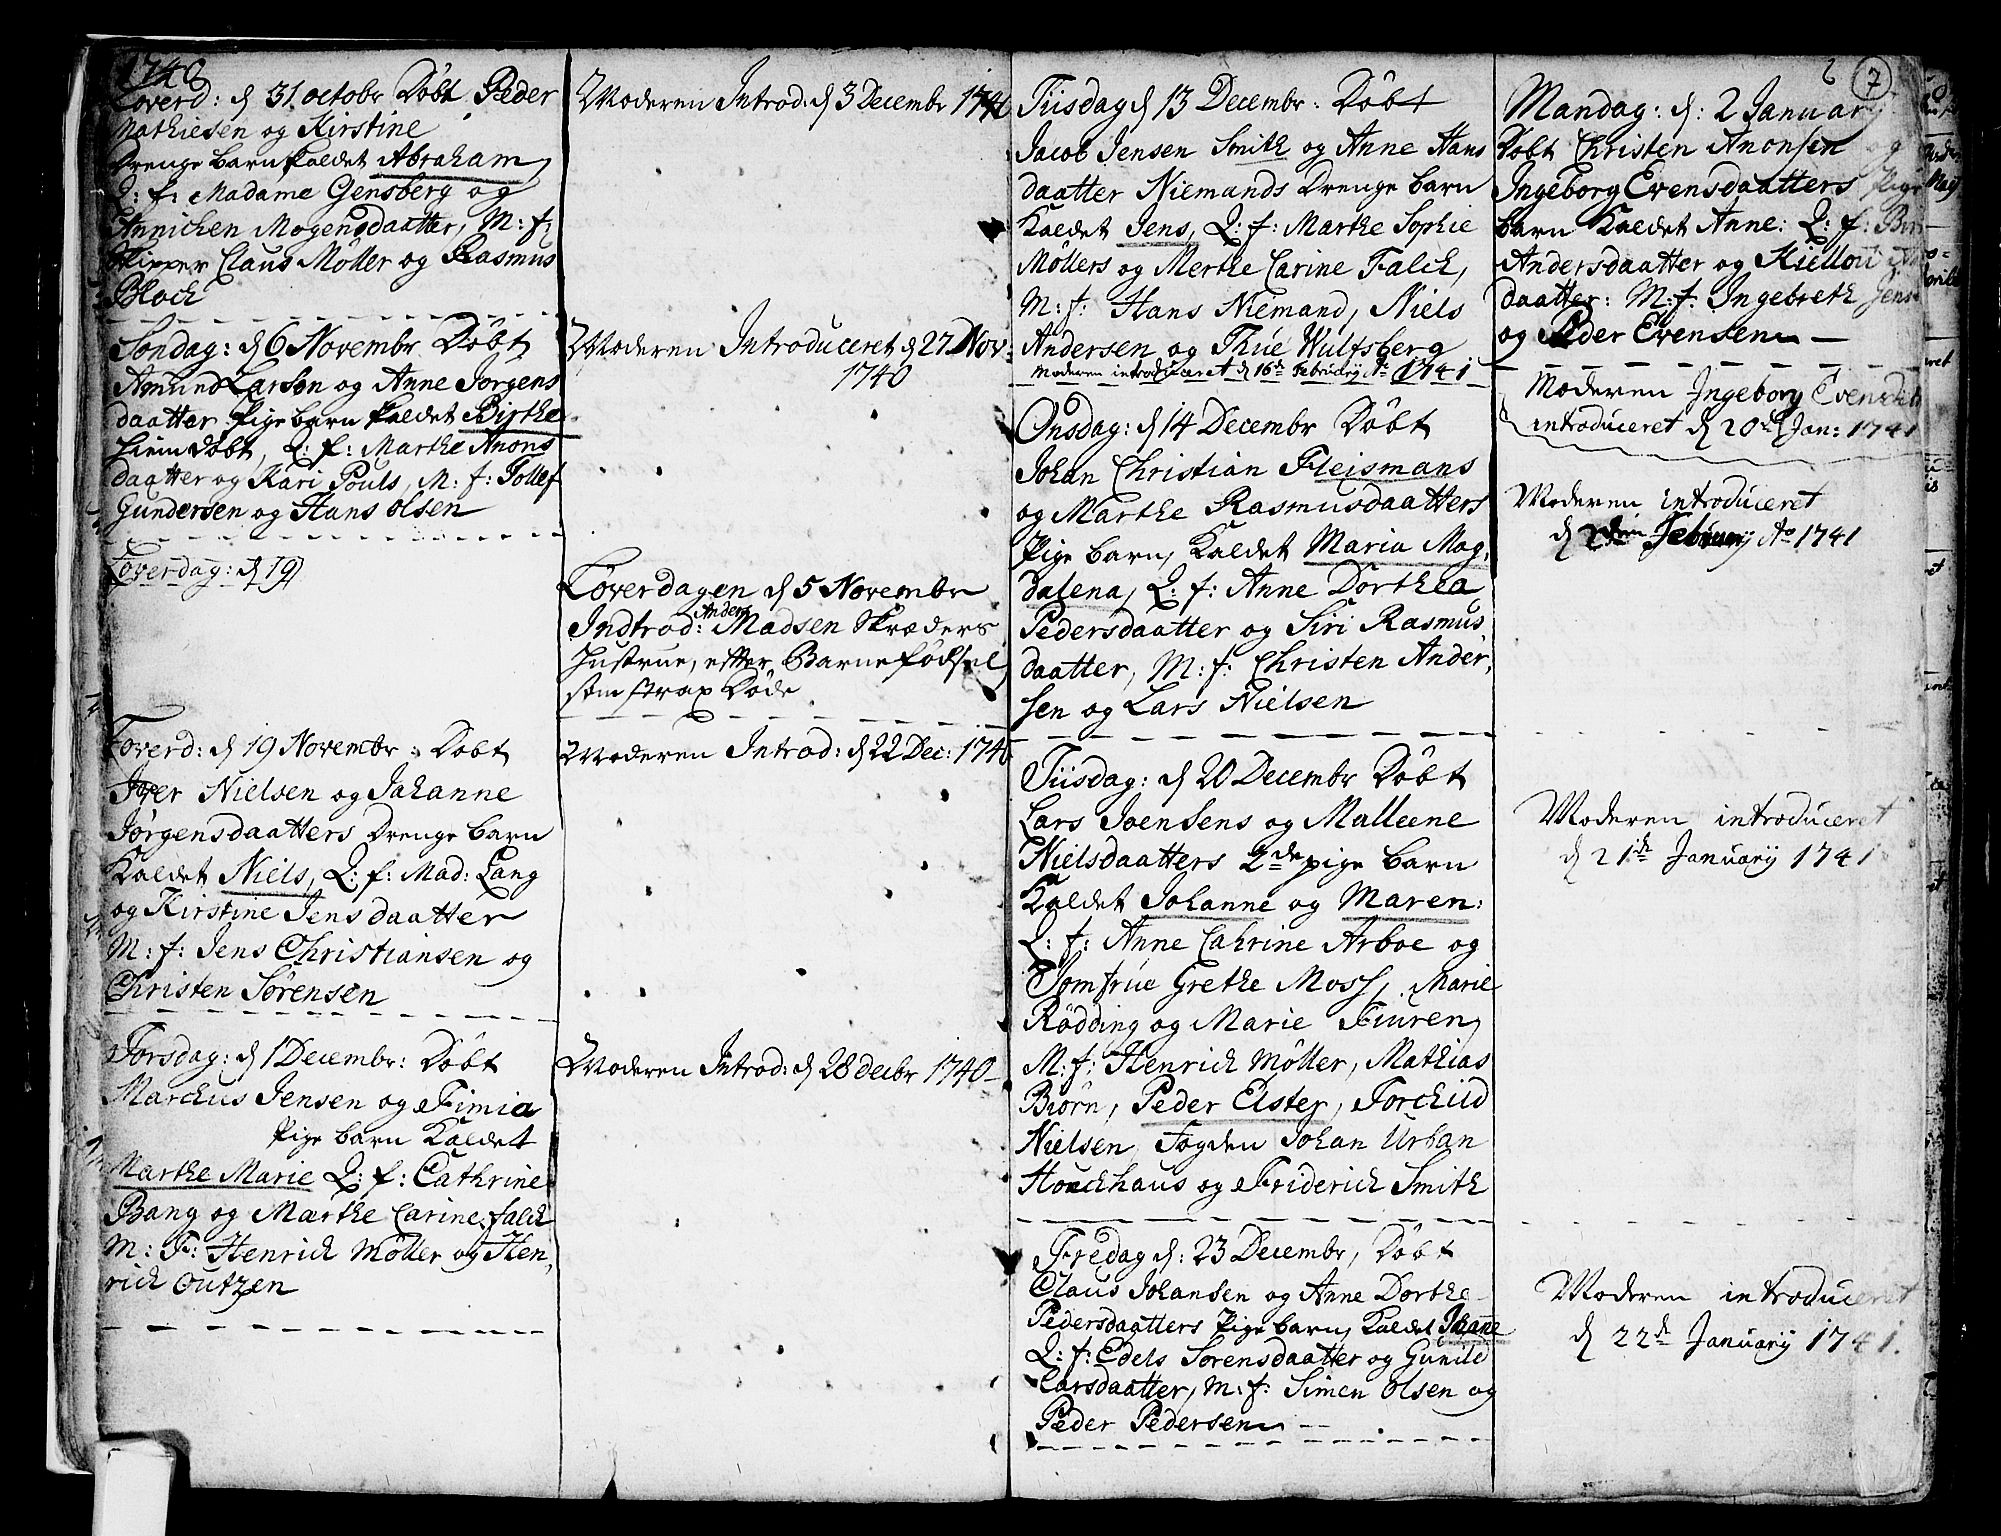 1740
Löverd: d 31 octobr Döbt Peder
Mathiesen og Kirstine
Drenge barn kaldet Abraham,
Q: f: Madame Gensberg og
Annichen Mogensdaatter, M: f:
Skipper Claus Möller og Rasmus
Bloch
Söndag: d 6 Novembr Döbt
Amund Larsen og Anne Jörgens
daatter Pige barn kaldet Birthe
hiemdöbt, Q: f: Marthe Anons
daatter og Kari Pouls, M: f: Tollef
Gundersen og Hans olsen
Löverdag: d 19
Löverd: d 19 Novembr: Döbt
Iver Nielsen og Johanne
Jörgensdaatters Drenge barn
Kaldet Niels, Q: f: Mad: Lang
og Kirstine Jens daatter
M: f: Jens Christiansen og
Christen Sörensen
Torsdag: d 1 Decembr: Döbt
Marchus Jensen og Fimia
Pige barn Kaldet
Marthe Marie Q: f: Cathrine
Bang og Marthe Carine falch
M: F: Henrich Möller og Hen,
rich outzen
Moderen Introd: d 3 Decembr 1740
Moderen Introduceret d 27 Nov:
1740
Löverdagen d 5 Novembr
Indtrod: Anders Madsen Skræders
Hustrue, efter Barnefödsel
som strax Döde
Moderen Introd: d 22 Dec: 1740
Moderen Introd: d 28 decbr 1740
Tiisdag d 13 Decembr: Döbt
Jacob Jensen Smith og Anne Hans
daatter Niemands Drenge barn
Kaldet Jens, Q: f: Marthe Sophie
Möllers og Merthe Carine Falch,
M: f: Hans Niemand, Niels
Andersen og Thue Wulfsberg
Moderen introduceret d 16de Februarij Ao 1741
Onsdag: d 14 Decembr Döbt
Johan Christian Fleismans
og Marthe Rasmusdaatters
Pige barn, Kaldet Maria Mag,
dalena, Q: f: Anne Dorthea
Pedersdaatter og Siri Rasmus
daatter, M: f: Christen Ander,
sen og Lars Nielsen
Tiisdag: d 20 Decembr Döbt
Lars Joensens og Malleene
Nielsdaatters 2de pige barn
Kaldet Johanne og Maren:
Q: f: Anne Cahrine Arboe og
Jomfrue Grethe Moss, Marie
Rödding og Marie Fiuren,
M: f: Henrich Möller, Mathias
Biörn, Peder Elster, Torchild
Nielsen, Fogden Johan Urban
Houchhaus og Friderich Smith
Fredag d: 23 Decembr, Döbt
Claus Johansen og Anne Dorthe
Pedersdaatters Pige barn, Kaldet Johane
Q: f: Edels Sörensdaatter og Gunild
Larsdaatter, M: f: Simen olsen og
Peder Pedersen
7
Mandag: d: 2 Januarij
Döbt Christen Anonsen og
Ingeborg Evensdaatters Pige
barn Kaldet Anne: Q: f:
Andersdaatter og Kiellou
daatter: M: f: Ingebreth Jens
og Peder Evensen
Moderen Ingeborg Evensdtr
introduceret d 20de Jan: 1741
Moderen introduceret
d 2den Februarij Ao 1741
Moderen introduceret
d 21de Januarij 1741
Moderen introduceret
d 22de Januarij 1741.